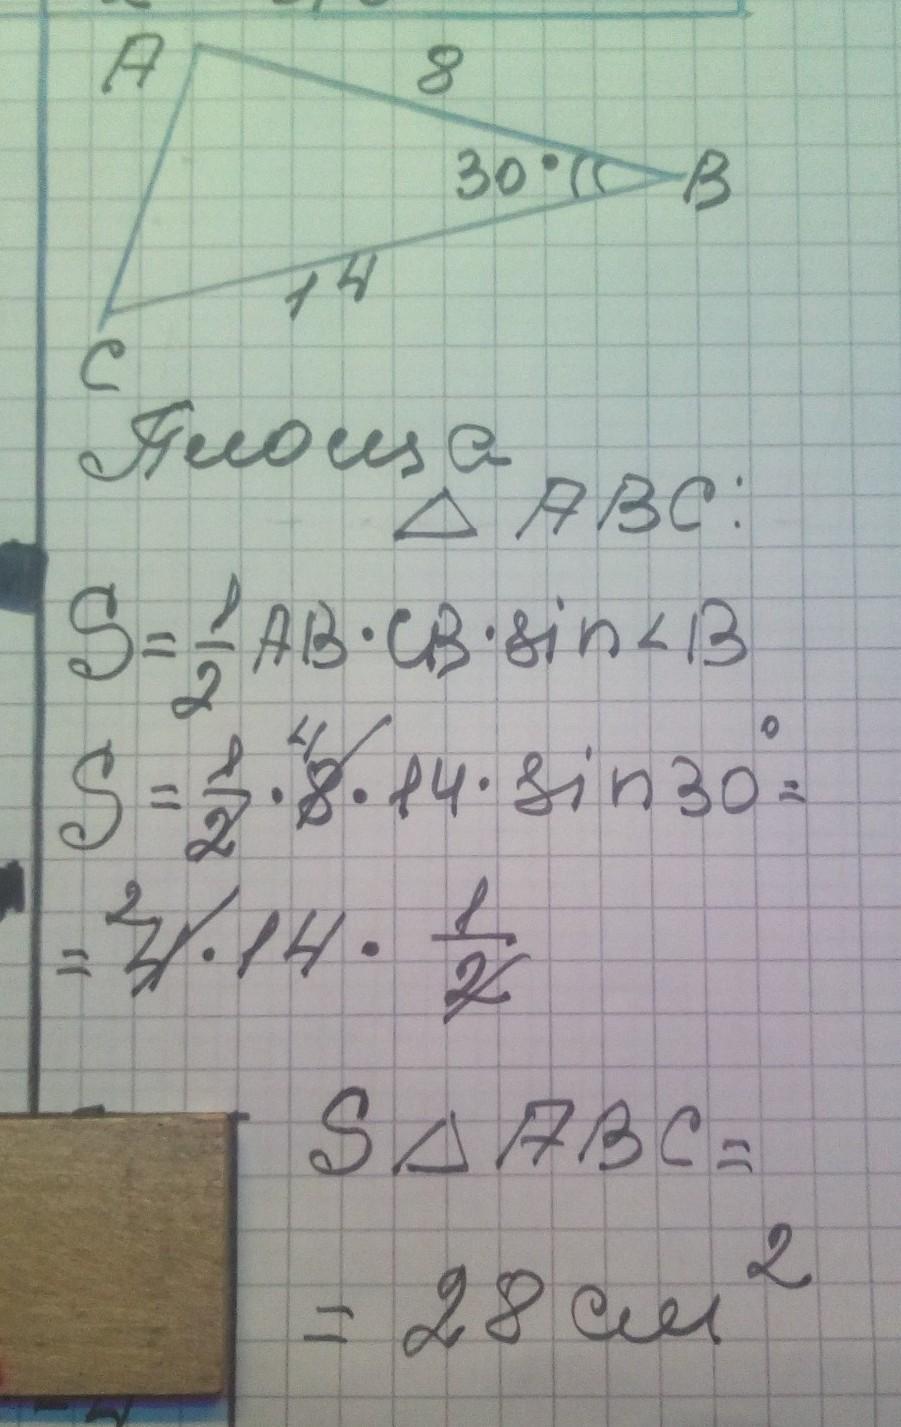 A
8
30°
B
14
C
Площа
△ ABC:
S = 1/2 AB · CB · sin ∠B
S = 1/2 · 8 4 · 14 · sin 30° =
= 4 2 · 14 · 1/2
S △ ABC =
= 28 см²